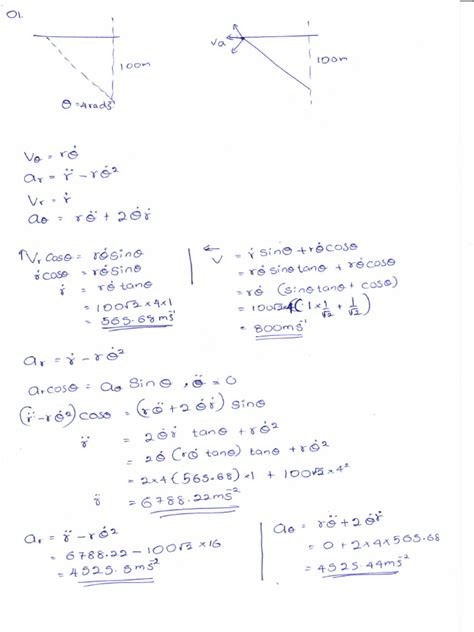 01.
100m
θ = 4rads⁻¹
Va
100m
Vθ = rθ̇
ar = r̈ - rθ̇²
Vr = ṙ
aθ = rθ̈ + 2θ̇ṙ
↑Vr cosθ = rθ̇sinθ
ṙcosθ = rθ̇sinθ
ṙ = rθ̇ tanθ
= 100√2 × 4 × 1
= 565.68 ms⁻¹
←V = ṙ sinθ + rθ̇cosθ
= rθ̇ sinθ tanθ + rθ̇cosθ
= rθ̇ (sinθtanθ + cosθ)
= 100√2 4 (1 × 1/√2 + 1/√2)
= 800ms⁻¹
ar = r̈ - rθ̇²
ar cosθ = aθ Sinθ , θ̈ = 0
(r̈ - rθ̇²) Cosθ = (rθ̈ + 2θ̇ṙ) Sinθ
r̈ = 2θ̇ṙ tanθ + rθ̇²
= 2θ̇ (rθ̇ tanθ) tanθ + rθ̇²
= 2×4 (565.68) × 1 + 100√2 × 4²
r̈ = 6788.22ms⁻²
ar = r̈ - rθ̇²
= 6788.22 - 100√2 × 16
= 4525.5ms⁻²
aθ = rθ̈ + 2θ̇ṙ
= 0 + 2×4×565.68
= 4525.44ms⁻²